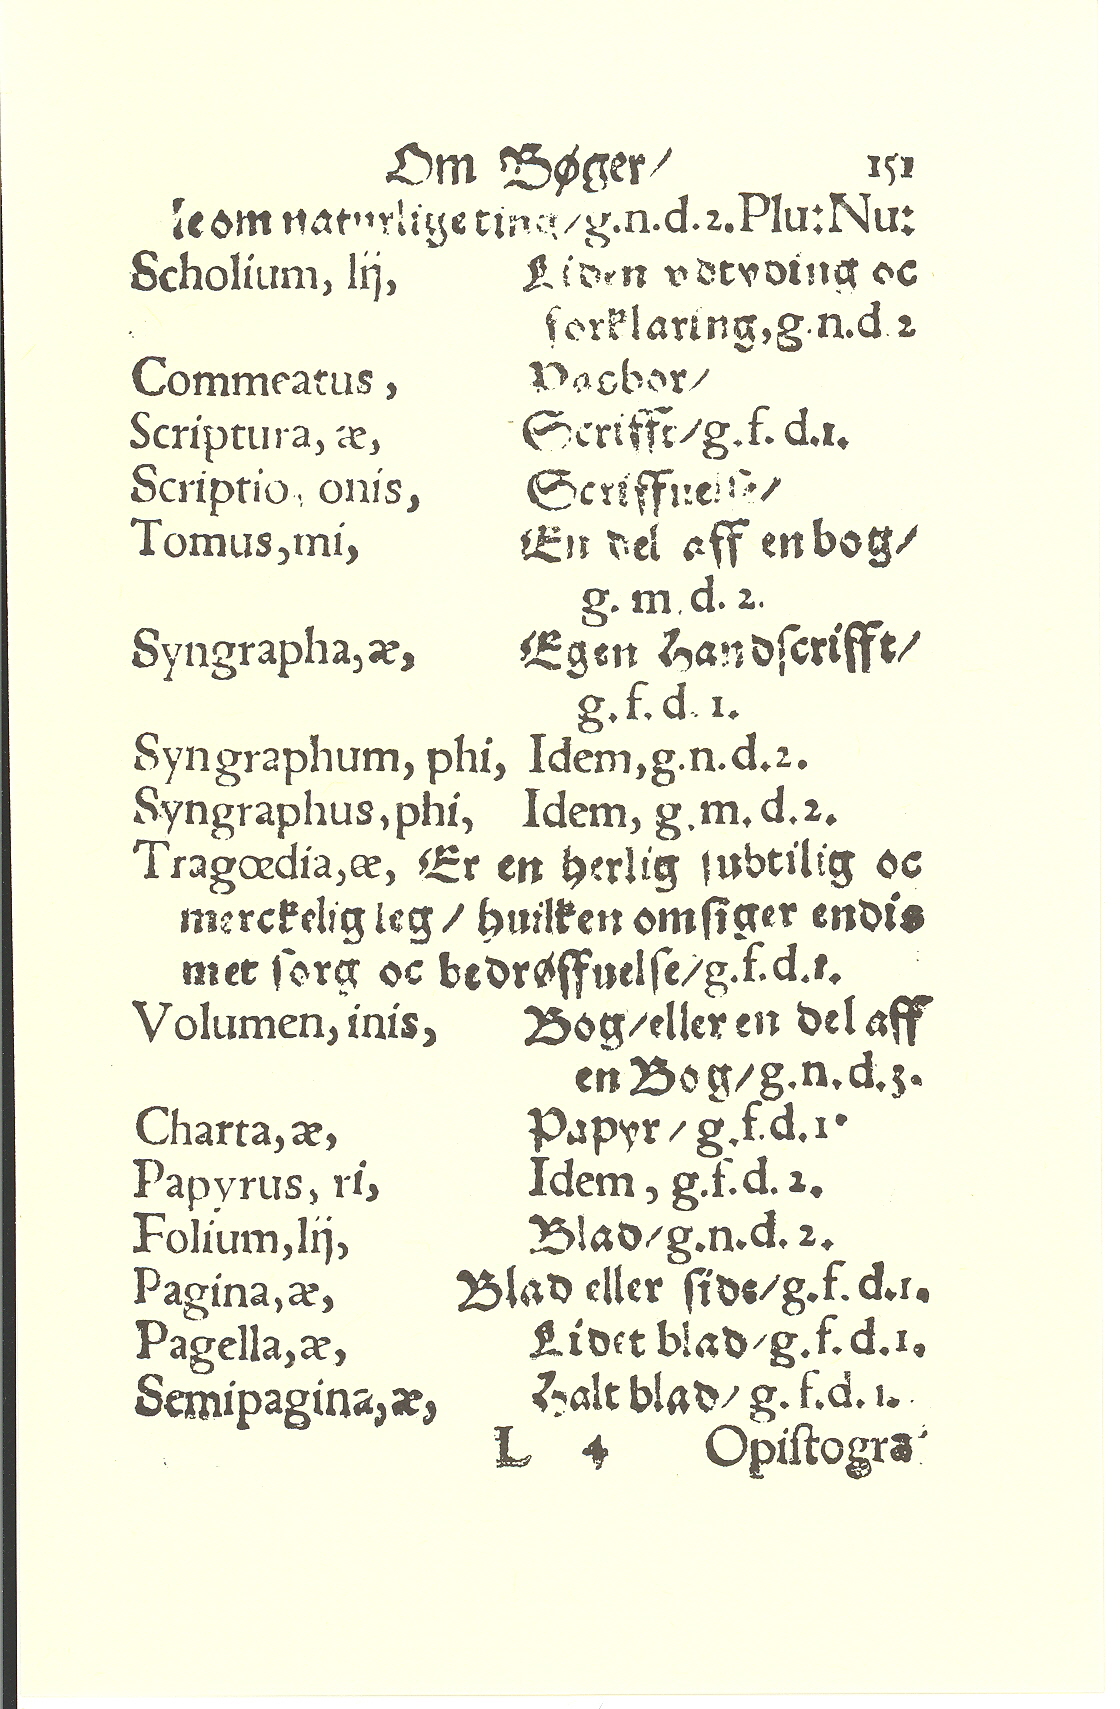 Om Bøger/ 151
le om naturlige ting/g.n.d.2.Plu:Nu:
Scholium, lij, Liden vdtyding oc
forklaring,g.n.d 2
Commeatus, Pasbor/
Scriptura, æ, Scrifft/g.f.d.1.
Scriptio, onis, Scriffuelse/
Tomus,mi, En del aff en bog/
g. m. d. 2.
Syngrapha,æ, Egen Handscrifft/
g. f. d. 1.
Syngraphum, phi, Idem,g.n.d.2.
Syngraphus,phi, Idem, g.m.d.2.
Tragœdia,æ, Er en herlig subtilig oc
merckelig leg / huilken om siger endis
met sorg oc bedrøffuelse/g.f.d.1.
Volumen,inis, Bog/eller en del aff
en Bog/g.n.d.3.
Charta,æ, Papyr / g.f.d.1.
Papyrus, ri, Idem, g.f.d.2.
Folium,lij, Blad/g.n.d.2.
Pagina,æ, Blad eller side/g.f.d.1.
Pagella,æ, Lidet blad/g.f.d.1.
Semipagina,æ, Halt blad/ g.f.d.1.
L 4 Opistogra-